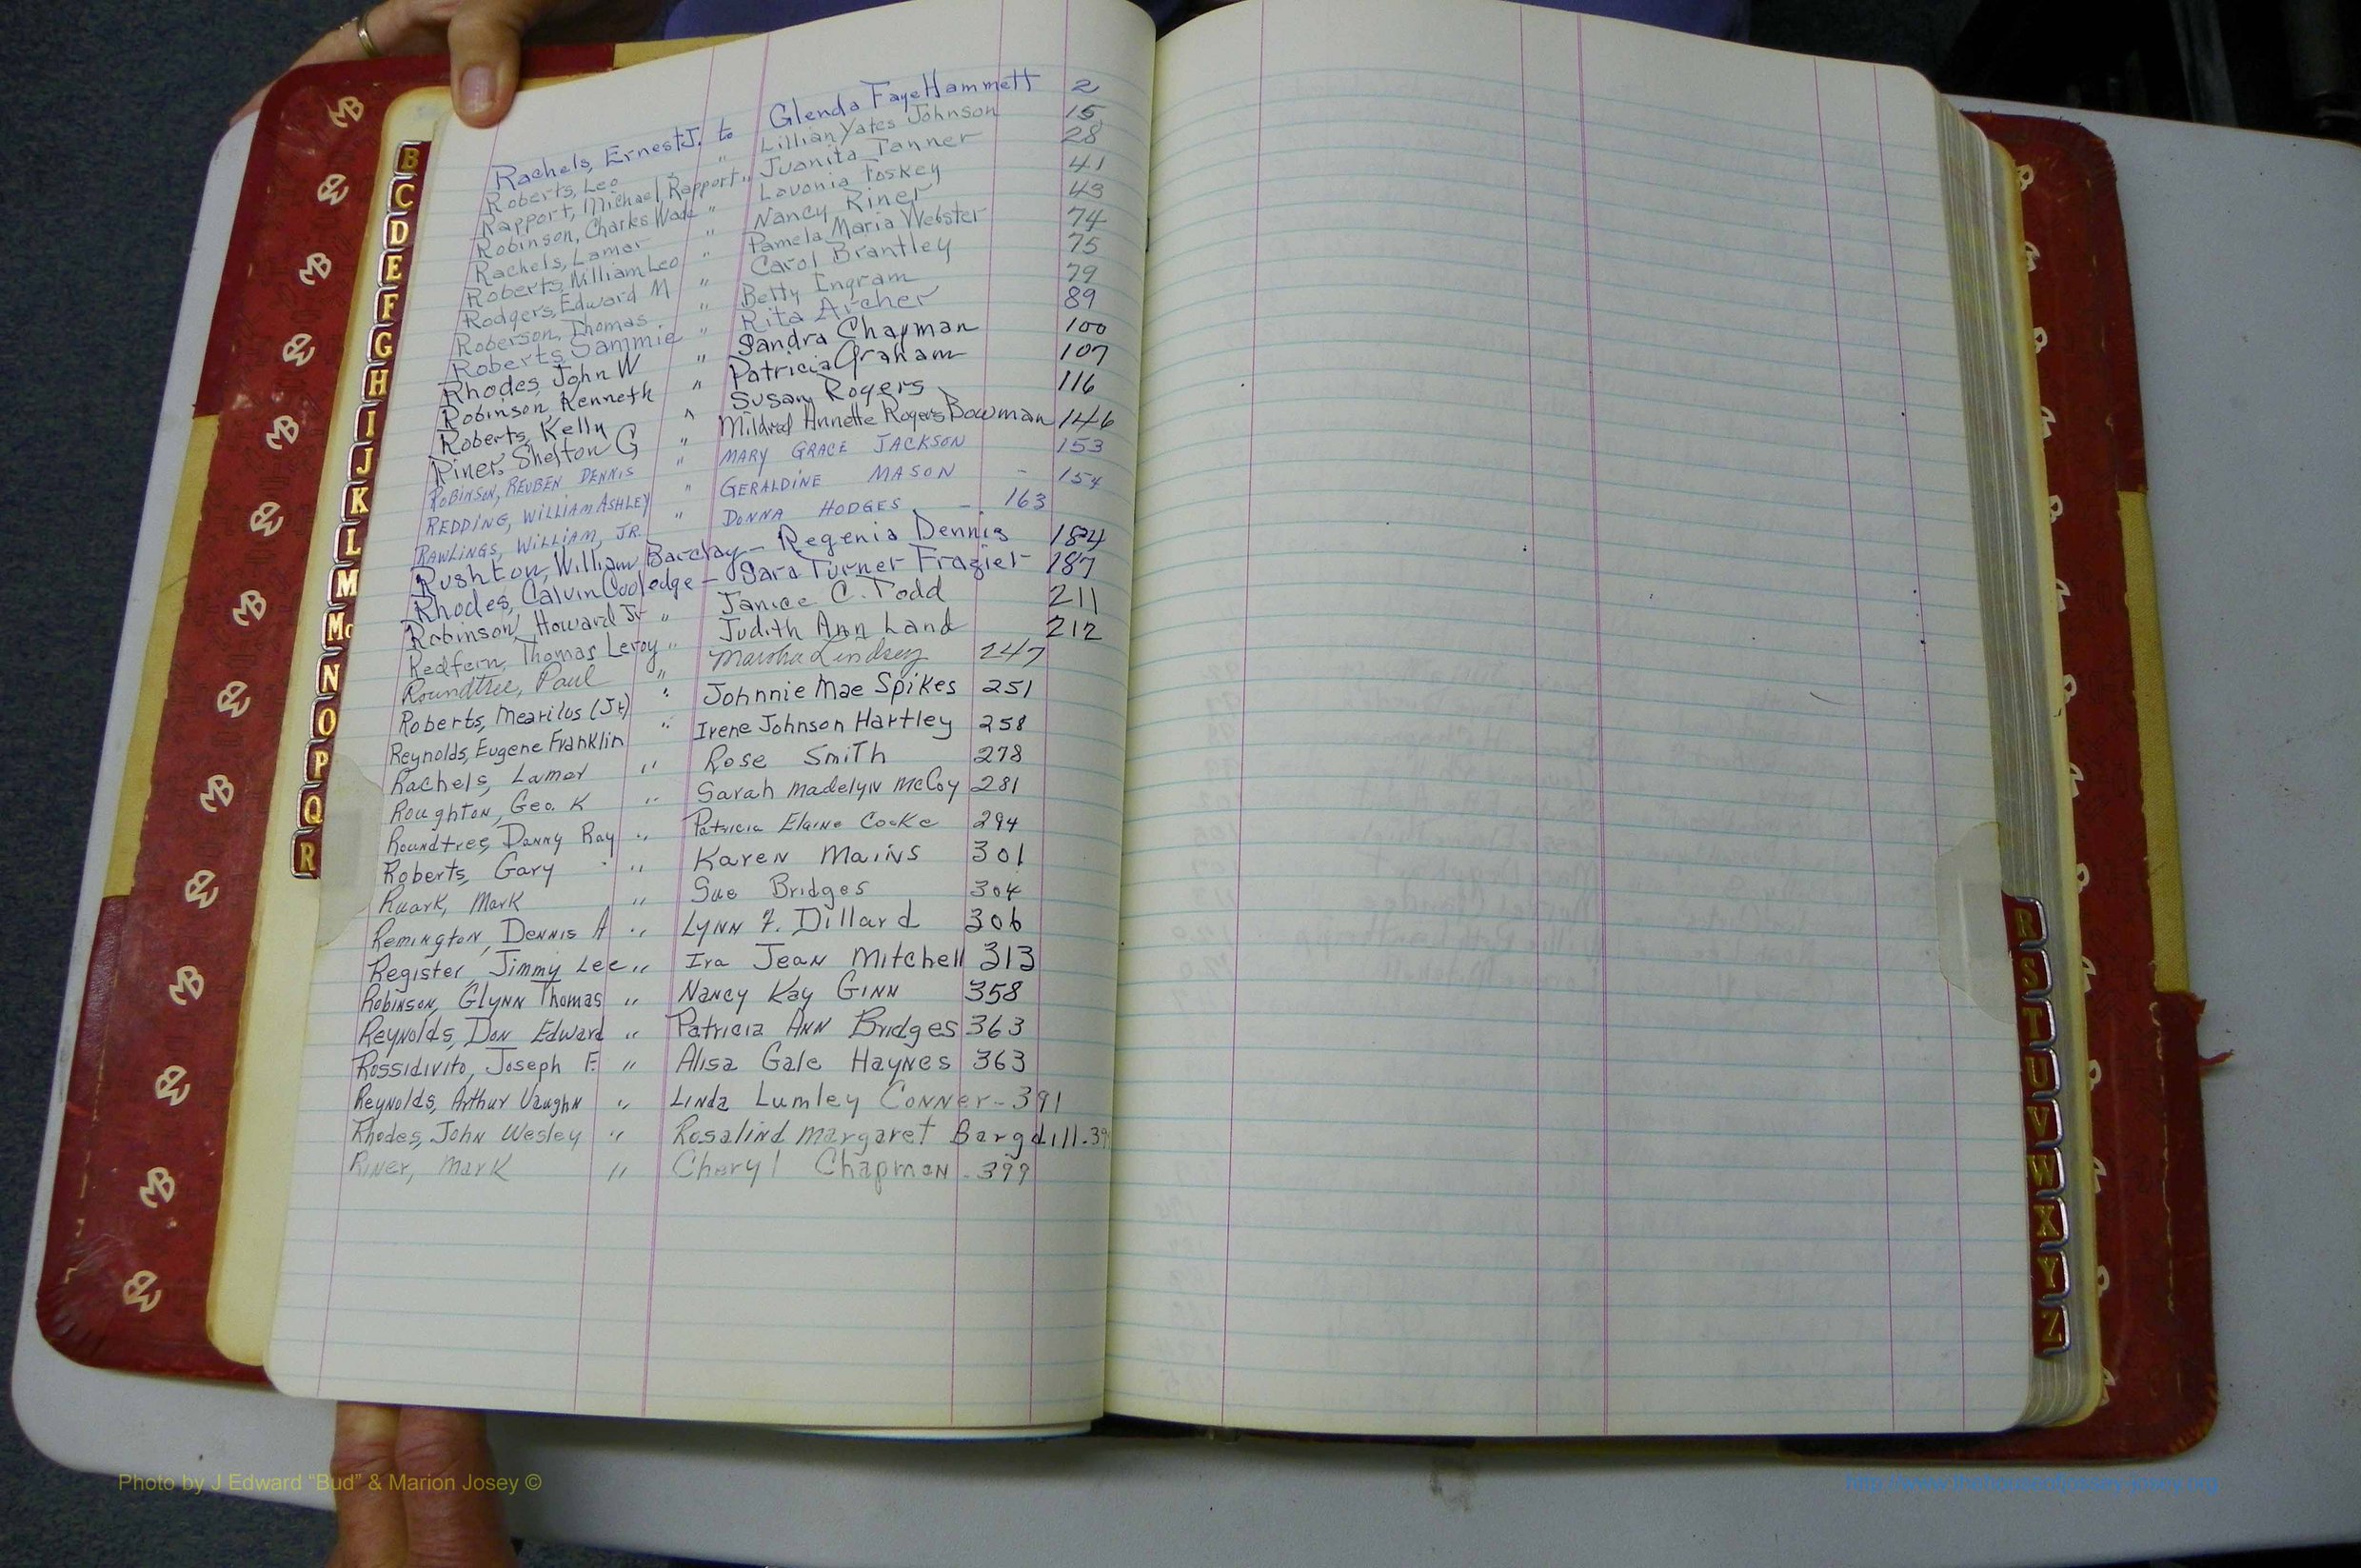 Rachels, Ernest J. to Glenda Faye Hammett 2
Roberts, Leo " Lillian Yates Johnson 15
Rapport, Michael Rapport " Juanita Tanner 28
Robinson, Charles Wade " Lavonia Foskey 41
Rachels, Lamar " Nancy Riner 43
Roberts, William Leo " Pamela Maria Webster 74
Rodgers, Edward M " Carol Brantley 75
Roberson, Thomas. " Betty Ingram 79
Roberts, Sammie " Rita Archer 89
Rhodes, John W " Sandra Chapman 100
Robinson, Kenneth " Patricia Graham 107
Roberts, Kelly " Susan Rogers 116
Riner, Shelton G " Mildred Annette Rogers Bowman 146
ROBINSON, REUBEN DENNIS " MARY GRACE JACKSON 153
REDDING, WILLIAM ASHLEY " GERALDINE MASON - 154
RAWLINGS, WILLIAM, JR. " DONNA HODGES - 163
Rushton, William Barclay - Regenia Dennis 184
Rhodes, Calvin Cooledge - Sara Turner Frazier 187
Robinson, Howard Jr " Janice C. Todd 211
Redfern, Thomas Leroy " Judith Ann Land 212
Roundtree, Paul " Marsha Lindsey 247
Roberts, Mearilus (Jr) " Johnnie Mae Spikes 251
Reynolds, Eugene Franklin " Irene Johnson Hartley 258
Rachels, Lamar " Rose Smith 278
Roughton, Geo. K " Sarah Madelyn McCoy 281
Roundtree, Danny Ray " Patricia Elaine Cocke 294
Roberts, Gary " Karen Mains 301
Ruark, Mark " Sue Bridges 304
Remington, Dennis A " Lynn F. Dillard 306
Register, Jimmy Lee " Ira Jean Mitchell 313
Robinson, Glynn Thomas " Nancy Kay Ginn 358
Reynolds, Don Edward " Patricia Ann Bridges 363
Rossidivito, Joseph F. " Alisa Gale Haynes 363
Reynolds, Arthur Vaughn " Linda Lumley Conner - 391
Rhodes, John Wesley " Rosalind Margaret Bargdill.
Riner, Mark " Cheryl Chapman - 399
B
C
D
E
F
G
H
I
J
K
L
M
Mc
N
O
P
Q
R
R
S
T
U
V
W
X
Y
Z
Photo by J Edward “Bud” & Marion Josey ©
http://www.thehouseofjossey-josey.org